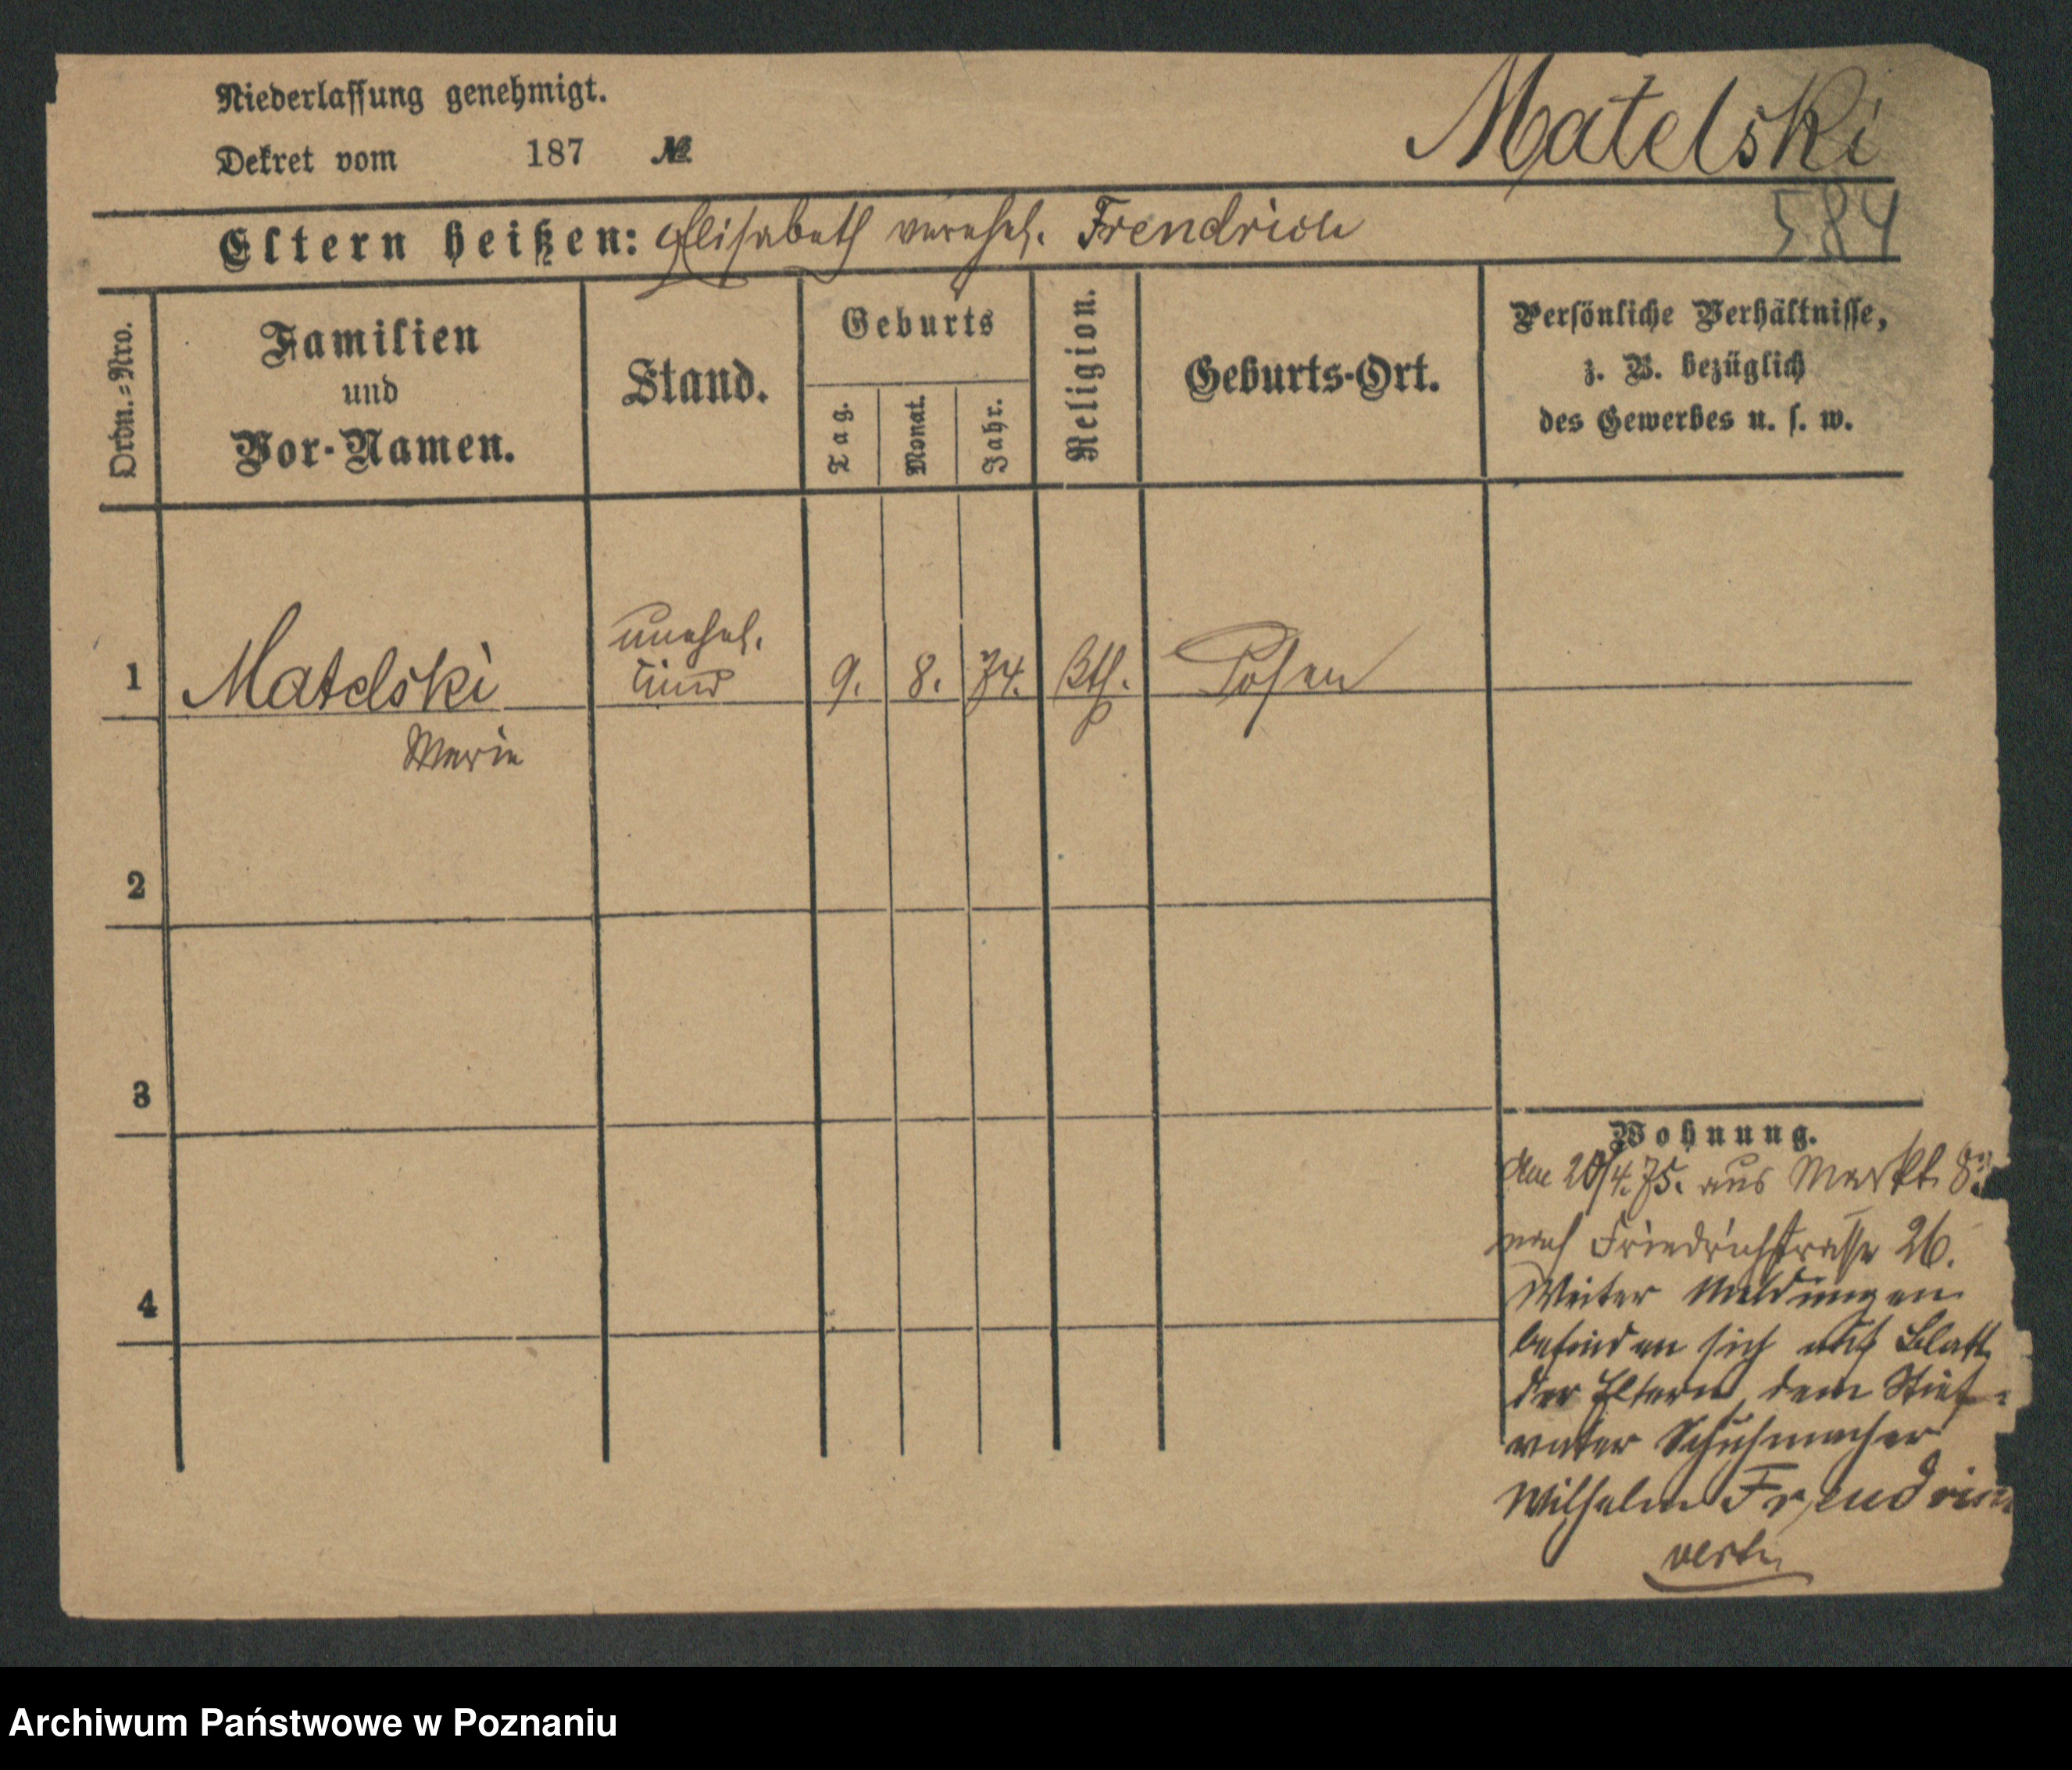 Niederlassung genehmigt.
Dekret vom 187 №
Matelski
584
Eltern heißen: Elisabeth verehel. Frendrich
Ordn.-Nro.
Familien
und
Vor-Namen.
Stand.
Geburts
Tag.
Monat.
Jahr.
Religion.
Geburts-Ort.
Persönliche Verhältnisse,
z. B. bezüglich
des Gewerbes u. s. w.
1
Matelski
Marie
unehel.
Kind
9. 8. 74. Kth. Posen
2
3
4
Wohnung.
20/4.75. aus Markt
nach Friedrichstrasse 26.
Weiter Meldungen
befinden sich auf Blatt
der Eltern, dem Stief-
vater Schuhmacher
Wilhelm Frendrich
Archiwum Państwowe w Poznaniu